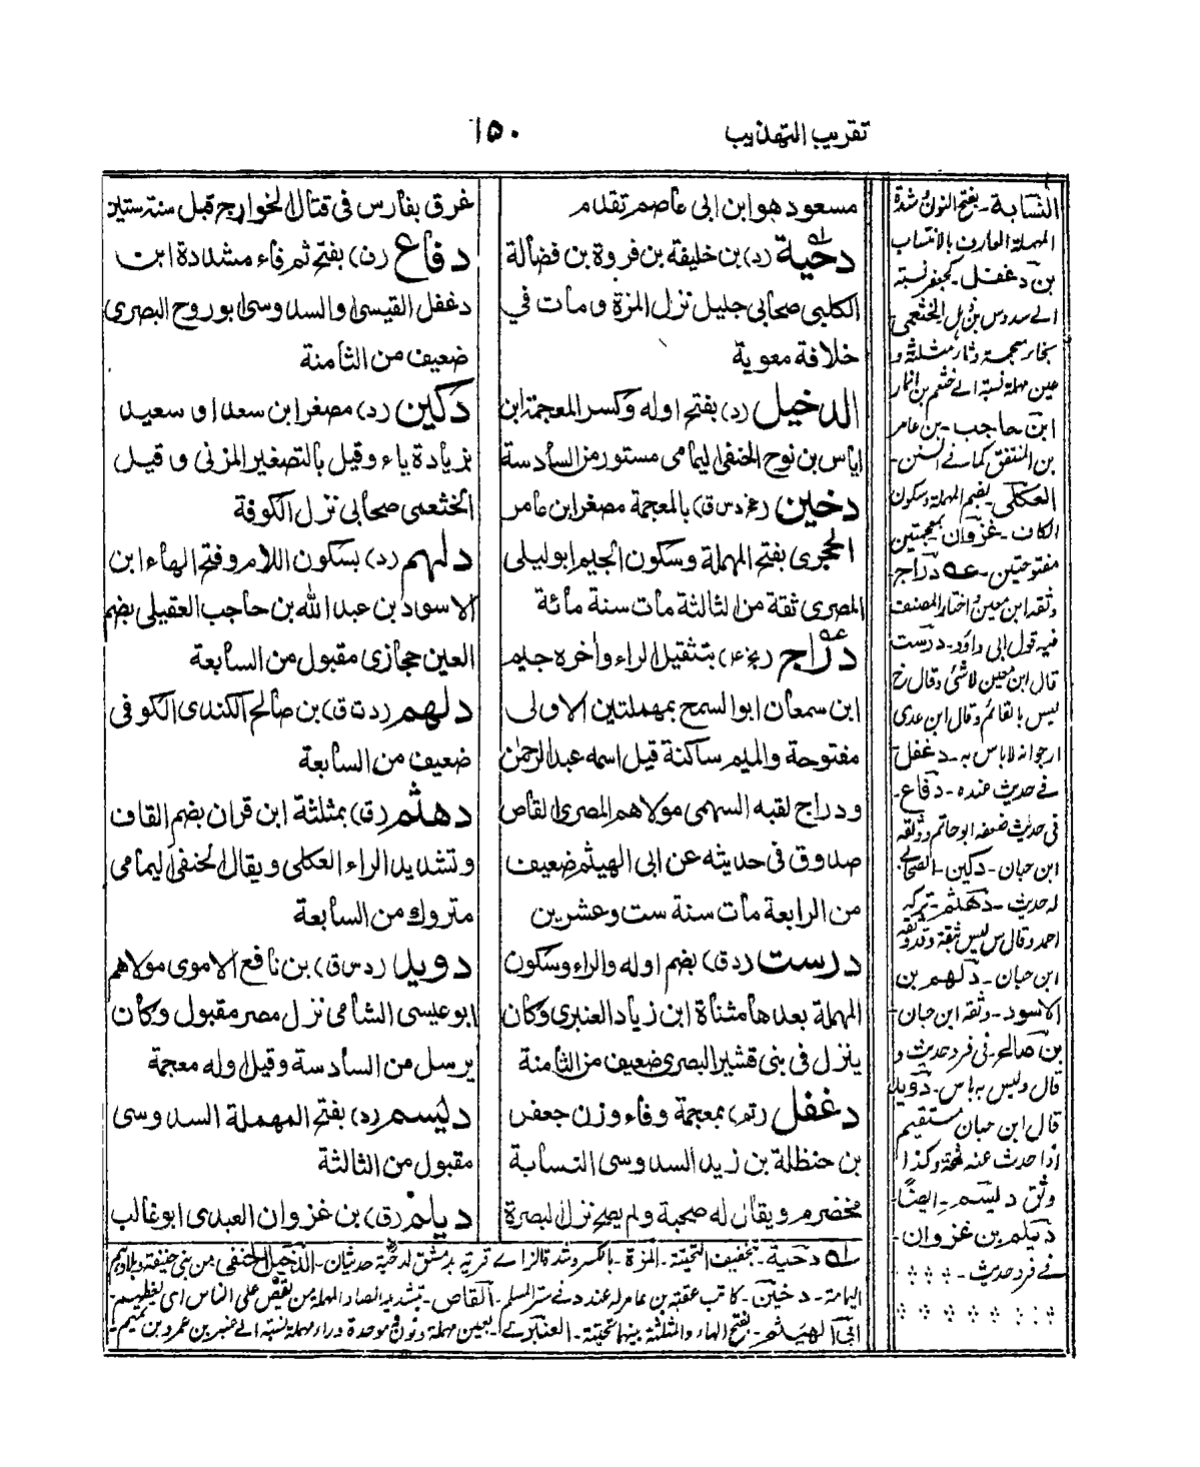 تقريب التهذيب
١٥٠
مسعود هو ابن ابى عاصم تقدم
دحية (د) بن خليفة بن فروة بن فضالة
الكلبى صحابى جليل نزل المزة ومات في
خلافة معوية
الدخيل (د) بفتح اوله وكسر المعجمة ابن
اياس بن نوح الحنفى اليمامى مستور من السادسة
دخين (عخ د س ق) بالمعجمة مصغر ابن عامر
الحجرى بفتح المهملة وسكون الجيم ابو ليلى
المصرى ثقة من الثالثة مات سنة مائة
دراج (بخ ٤) بتثقيل الراء وأخره جيم
ابن سمعان ابو السمح بمهملتين الاولى
مفتوحة والميم ساكنة قيل اسمه عبد الرحمن
ودراج لقبه السهمى مولاهم المصرى القاص
صدوق فى حديثه عن ابى الهيثم ضعيف
من الرابعة مات سنة ست وعشرين
درست (د ق) بضم اوله والراء وسكون
المهملة بعدها مثناة ابن زياد العنبرى وكان
ينزل فى بنى قشير البصرى ضعيف من الثامنة
دغفل (تم) بمعجمة وفاء وزن جعفر
بن حنظلة بن زيد السدوسى النسابة
مخضرم ويقال له صحبة ولم يصح نزل البصرة
غرق بفارس فى قتال الخوارج قبل سنة ستين
دفاع (ن) بفتح ثم فاء مشددة ابن
دغفل القيسى والسدوسى ابو روح البصرى
ضعيف من الثامنة
دكين (د) مصغر ابن سعد او سعيد
بزيادة ياء وقيل بالتصغير المزنى وقيل
الخثعمى صحابى نزل الكوفة
دلهم (د) بسكون اللام وفتح الهاء ابن
الاسود بن عبد الله بن حاجب العقيلى بضم
العين حجازى مقبول من السابعة
دلهم (د ت ق) بن صالح الكندى الكوفى
ضعيف من السابعة
دهثم (ق) بمثلثة ابن قران بضم القاف
وتشديد الراء العكلى ويقال الحنفى اليمامى
متروك من السابعة
دويد (د س ق) بن نافع الاموى مولاهم
ابو عيسى الشامى نزل مصر مقبول وكان
يرسل من السادسة وقيل اوله معجمة
ديسم (د) بفتح المهملة السدوسى
مقبول من الثالثة
ديلم (ق) بن غزوان العبدى ابو غالب
النسابة - بفتح النون وشدة
المهملة العارف بالانتساب
بن دغفل - كجعفر نسبة
الى سدوس بن الخثعمى
بخاء معجمة وثاء مثلثة و
عين مهملة نسبة الى خثعم بن انمار
ابن حاجب - بن عامر
بن المنتفق كما فى السنن -
العكلى بضم المهملة وسكون
الكاف - غزوان بمعجمتين
مفتوحتين - دراج
وثقه ابن معين واختار المصنف
فيه قول ابى داود - درست
قال ابن معين لا شئ وقال خ
ليس بالقائم وقال ابن عدى
ارجو انه لا باس به - دغفل
فى حديث عنده - دفاع -
فى حديث ضعفه ابو حاتم ووثقه
ابن حبان - دكين - الصحابى
له حديث - دهثم - تركه
احمد وقال س ليس ثقة
ابن حبان - دلهم بن
الاسود - وثقه ابن حبان
بن صالح - فى فرد حديث و
قال د ليس به باس - دويد
قال ابن حبان مستقيم
اذا حدث عنه ثقة وكذا
وثق ديسم - ايضا
ديلم بن غزوان -
فى فرد حديث -
له دحية - بتخفيف التحتية - المزة - بالكسر وشد قالزاى قرية بدمشق لدحية حديثان - الدخيل الحنفى من بنى حنيفة وبلادهم
اليمامة - دخين - كاتب عقبة بن عامر له عند د فى ستر المسلم - القاص - بتشديد الصاد المهملة من يقص على الناس اى يعظهم -
ابى الهيثم - بفتح الهاء والمثلثة بينهما تحتية - العنبرى - بعين مهملة ونون فموحدة وراء مهملة نسبة الى عنبر بن عمرو بن تميم -